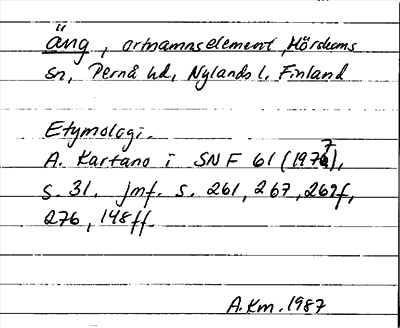 äng, ortnamnselement, Mörskoms
sn, Pernå hd, Nylands l. Finland
Etymologi.
A. Kartano i SNF 61 (1977),
s. 31. jmf. s. 261, 267, 269f,
276, 148ff.
A.Km. 1987